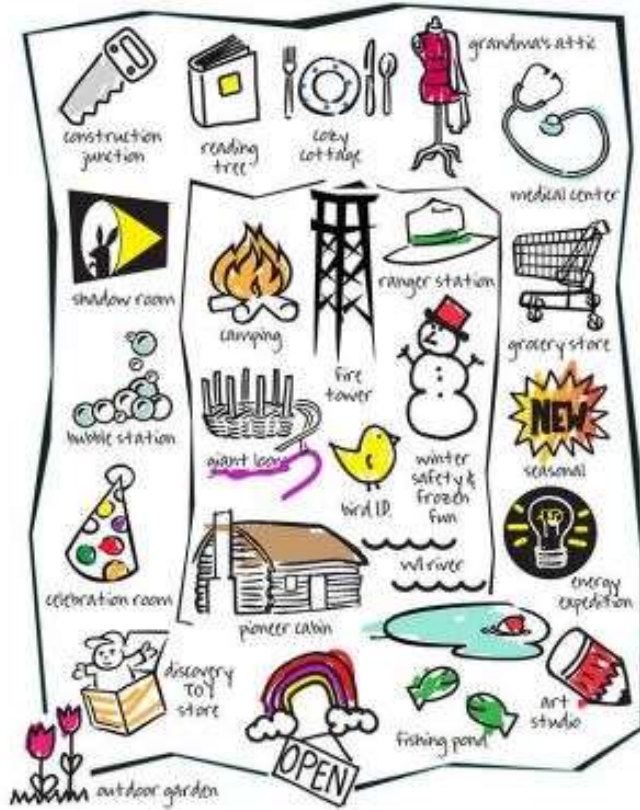 grandma's attic
construction
junction
reading
tree
cozy
cottage
medical center
shadow room
camping
fire
tower
ranger station
grocery store
bubble station
giant loom
bird I.D.
winter
safety &
frozen
fun
NEW
seasonal
celebration room
pioneer cabin
wl river
energy
expedition
discovery
TOY
store
OPEN
fishing pond
art
studio
outdoor garden